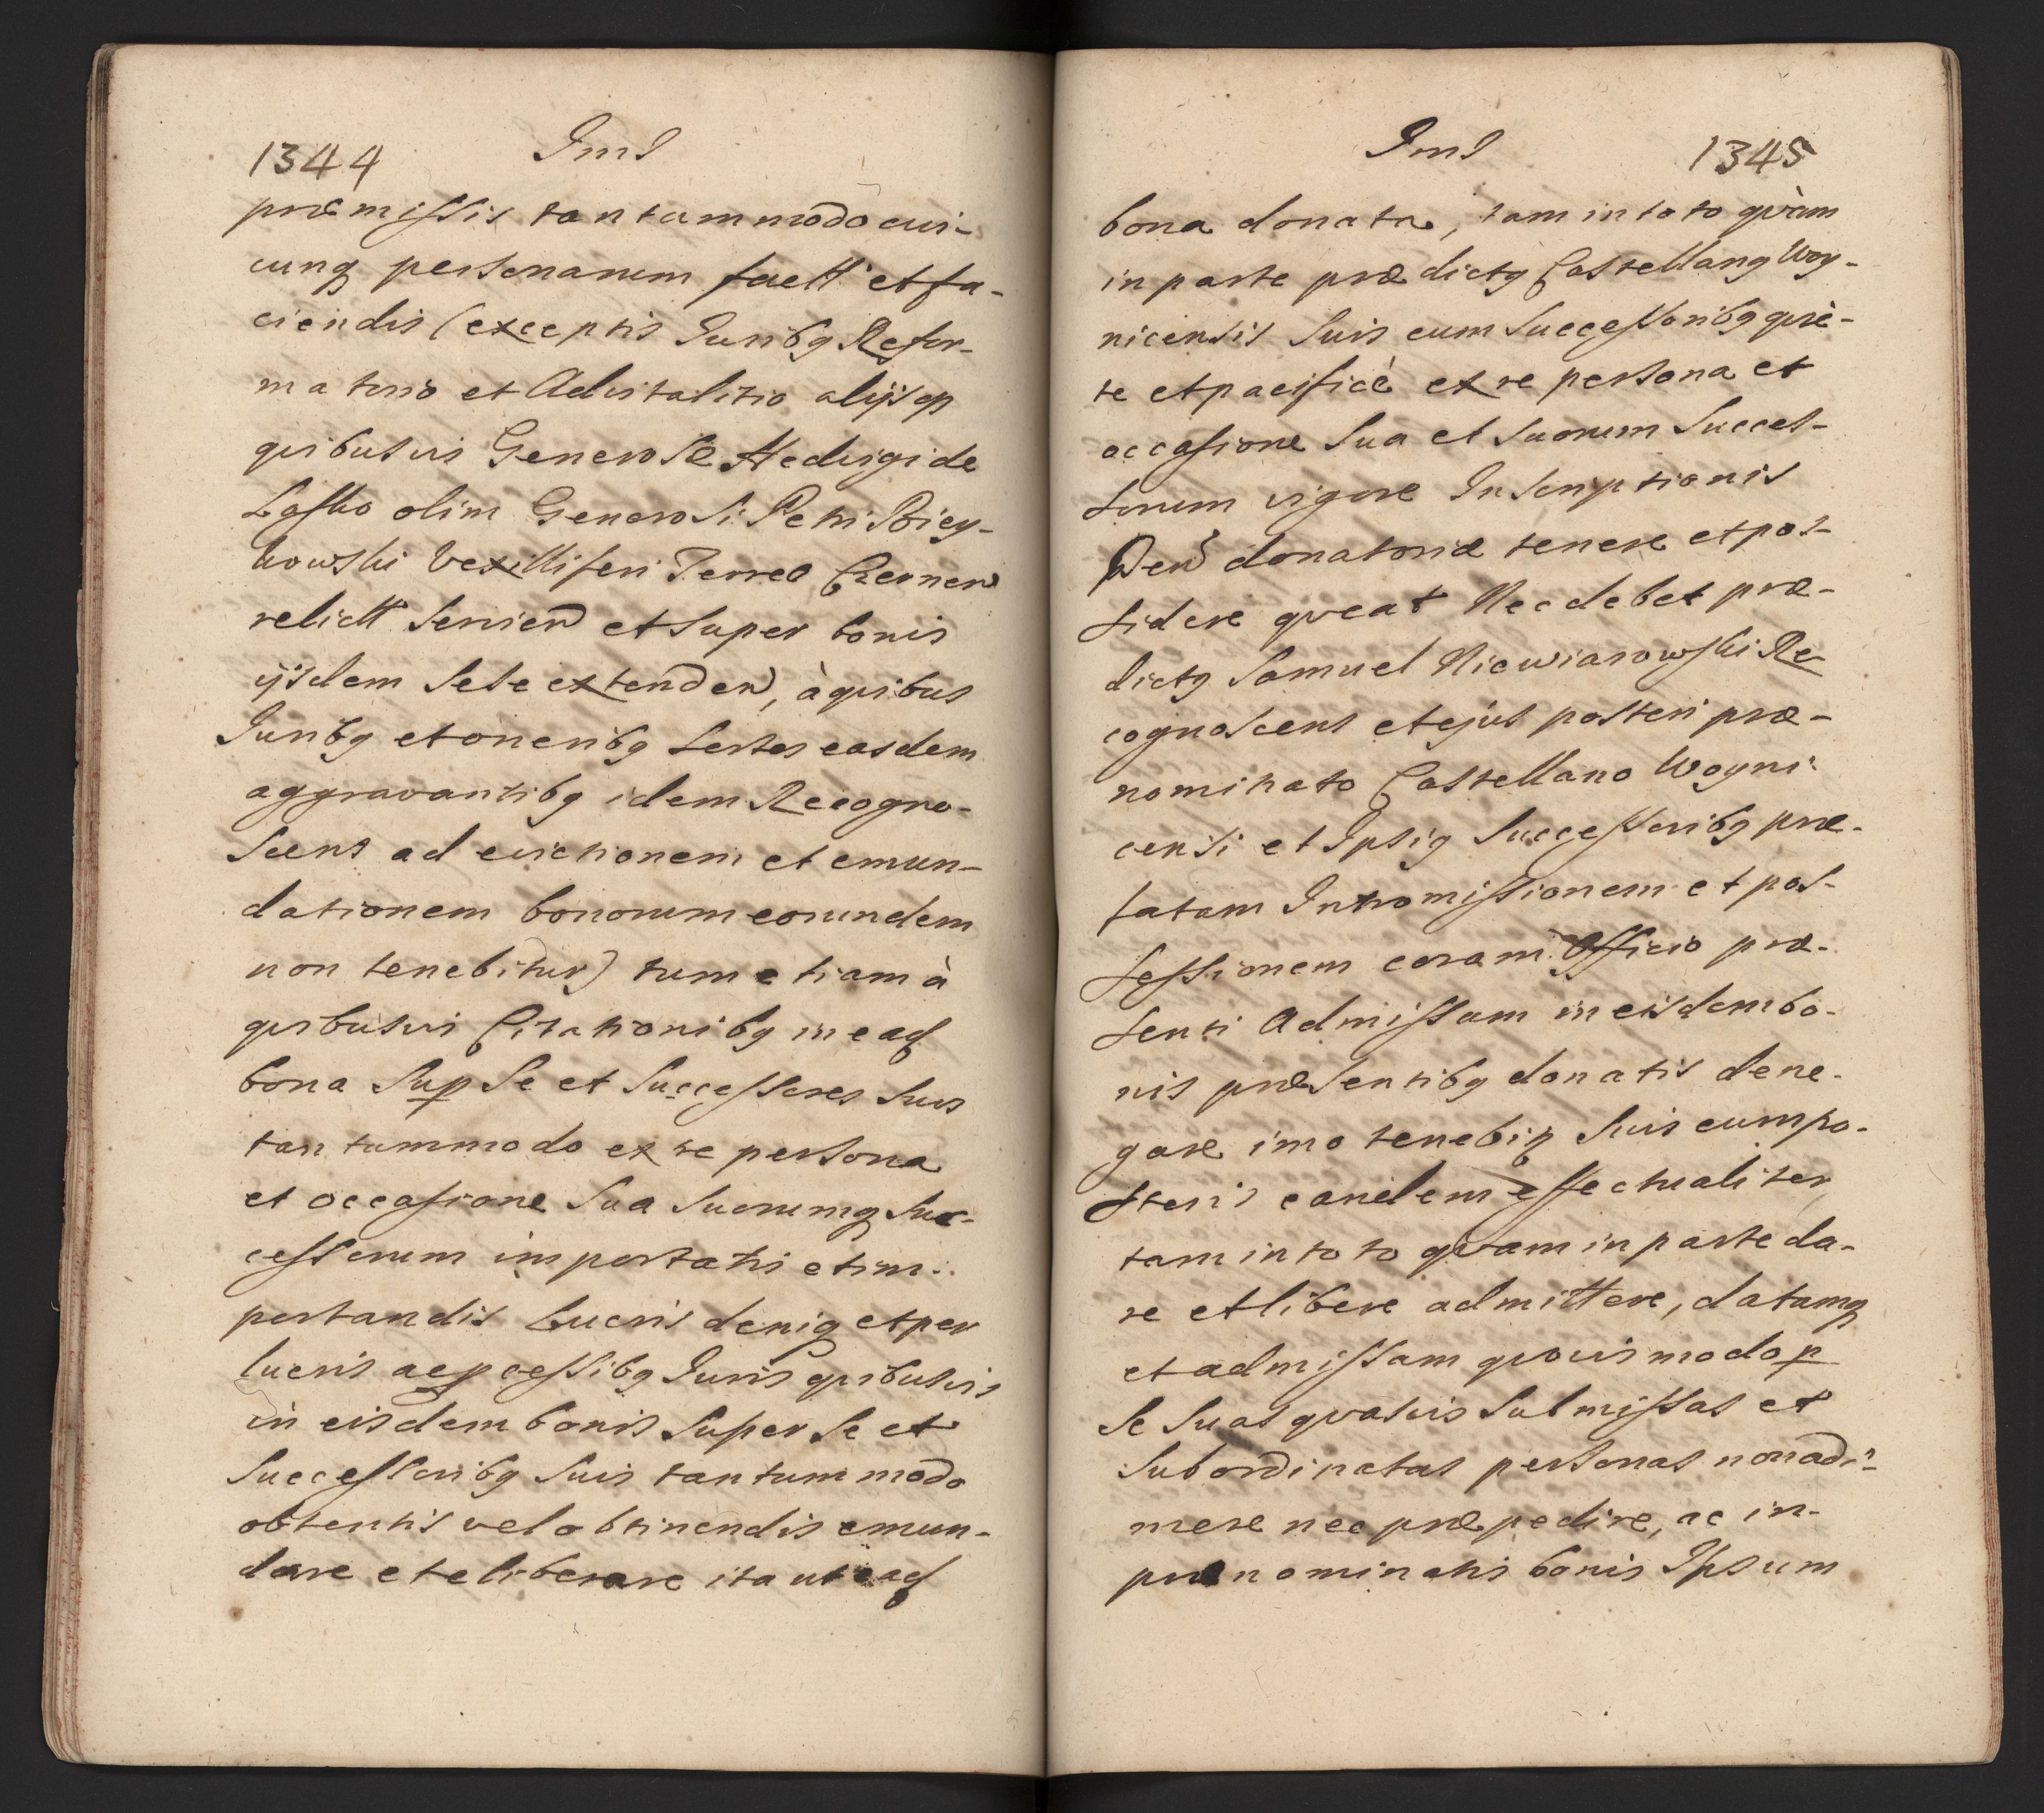 1344 JmJ
præmissis tantummodo cui-
cunq personarum factt et fa-
ciendis (exceptis Juribq Refor-
matorio et Advitalitio alijsqз
quibusvis Generosæ Hedvigi de
Lasko olim Generosi Petri Biey-
kowski Vexilliferi Terræ Czernen
relictt servien et super bonis
ijsdem sese extenden, à quibus
Juribq et oneribq sortes easdem
aggravantibq idem Recogno-
scens ad evictionem et emun-
dationem bonorum eorundem
non tenebitur) tum etiam à
quibusvis Citationibq in eaq
bona sup se et successores suos
tantummodo ex re persona
et occasione sua suorumq suc-
cessorum importatis et im-
portandis lucris deniq et per
lucris ac processibq Juris quibusvis
in eisdem bonis super se et
successoribq suis tantummodo
obtentis vel obtinendis emun-
dare et eliberare ita ut eaq
JmJ 1345
bona donata, tam in toto qvàm
in parte prædictq Castellanq Woy-
nicensis suis cum successoribq qviè-
te et pacificè ex re persona et
occasione sua et suorum succes-
sorum vigore Inscriptionis
donatoriæ tenere et pos-
sidere qveat Nec debet præ-
dictq Samuel Niewiarowski Re-
cognoscens et ejus posteri præ-
nominato Castellano Woyni-
censi et Ipsiq successoribq præ-
fatam Intromissionem et pos-
sessionem coram Officio præ-
senti Admissam in eisdem bo-
nis præsentibq donatis dene-
gare imo tenebiꝶ suis cum po-
steris eandem effectualiter
tam in toto qvam in parte da-
re et libere admittere, datamq
et admissam qvovismodo p
se suas qvasvis submissas et
subordinatas personas non adi-
mere nec præpedire, ac in-
prænominatis bonis Ipsum